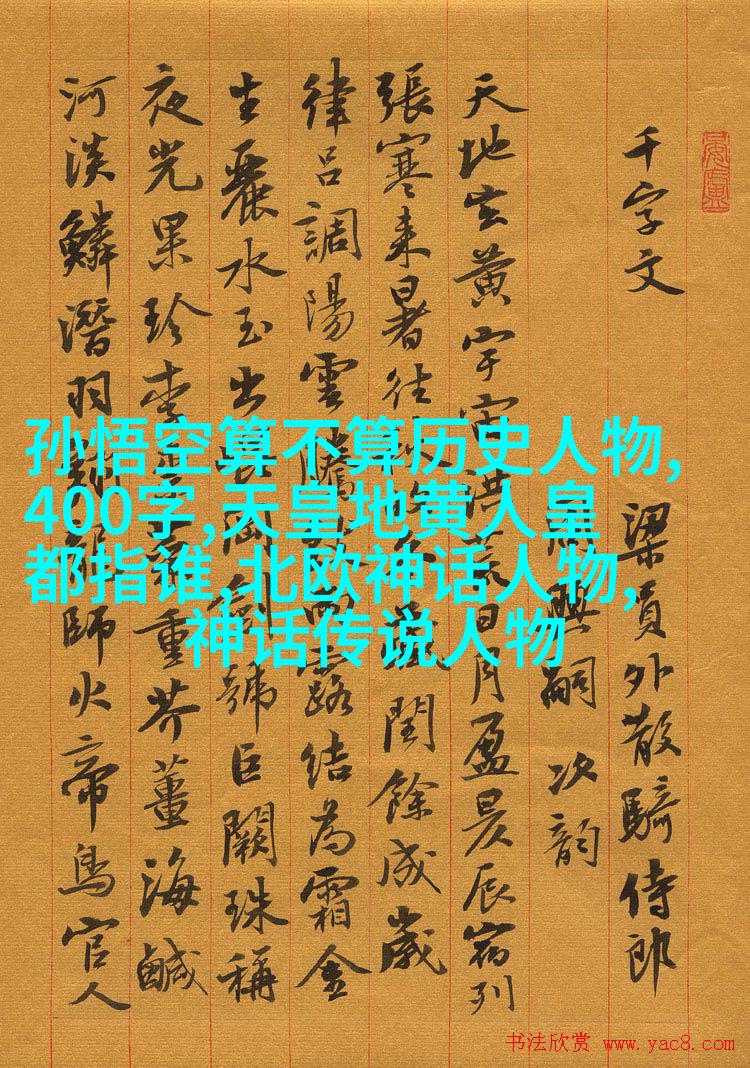 千字文
梁員外散騎侍郎
興嗣次韵
天地玄黄宇宙洪荒日月盈昃辰宿列
張寒来暑往收藏閏餘成歲
律吕調陽雲騰雨露結為霜金
生麗水玉出崑岡劍號巨闕珠稱
夜光果珍李重芥薑海鹹
河淡鱗潛羽翔龍師火帝鳥官人
孙悟空算不算历史人物,
400字,天皇地黄人皇
都指谁,北欧神话人物,
神话传说人物
书法欣赏 www.yac8.com